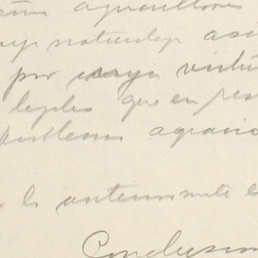 agricultores
naturaleza así
por cuya virtud
leyes que en pres
problema agrario
lo anteriormente e
Conclusion